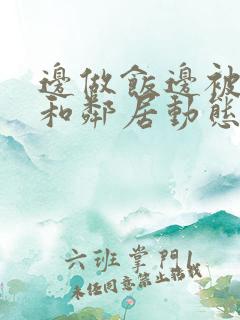 邊做飯邊被
和鄰居動態
六班掌門1
未經同意禁止轉載